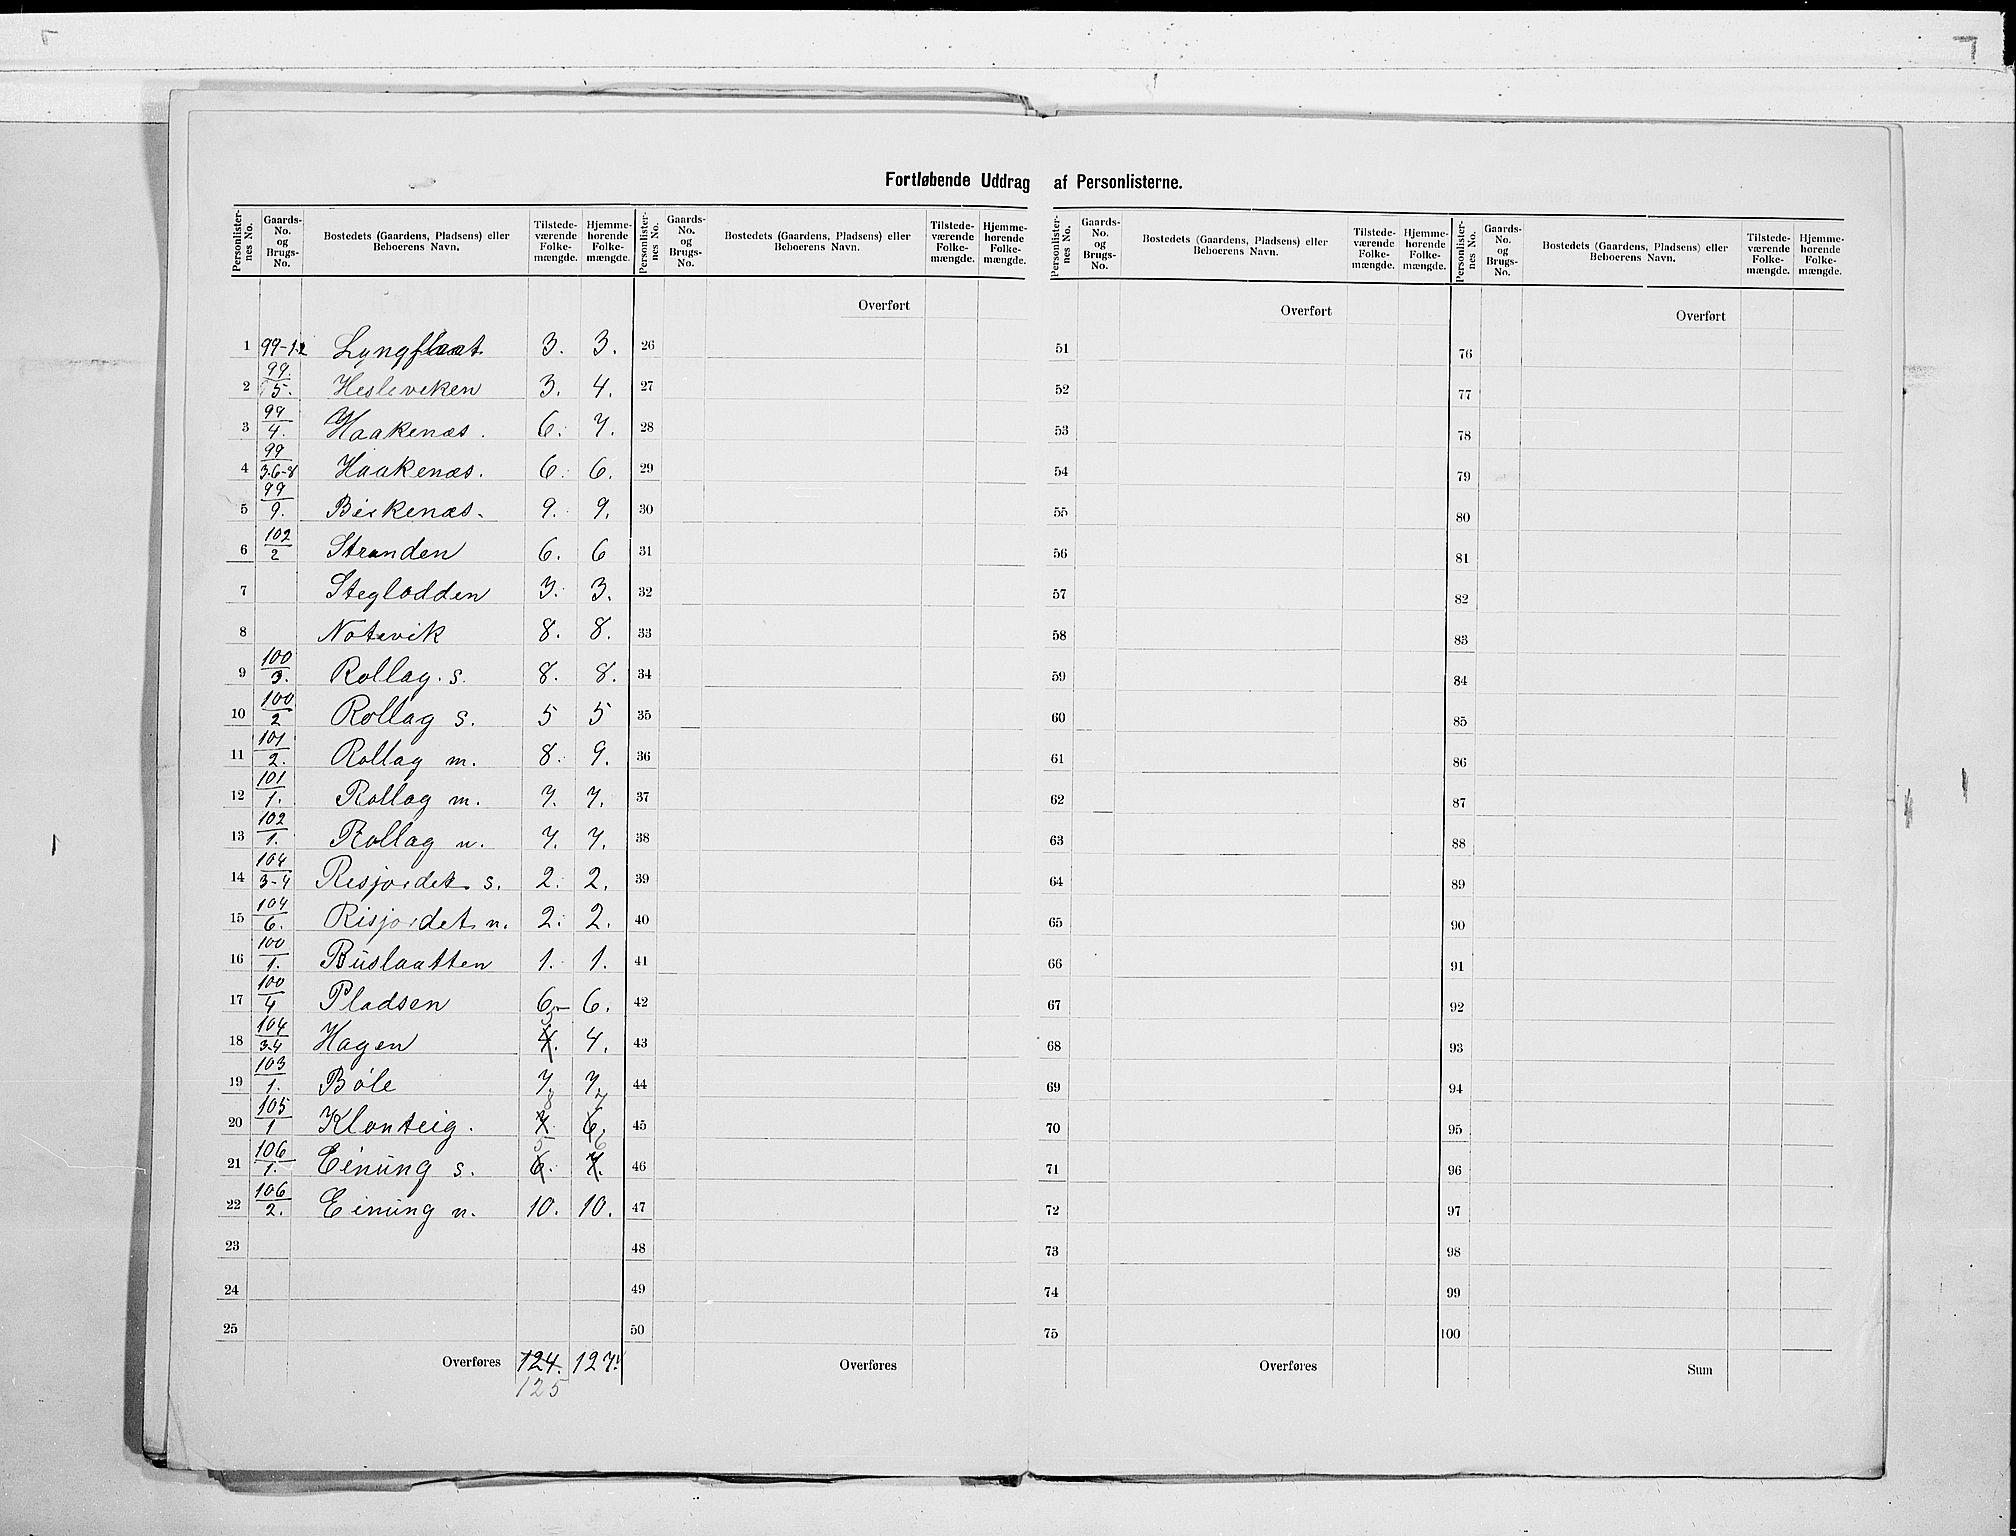 Fortløbende Uddrag af Personlisterne.
Personlister-nes No. Gaards-No. og Brugs-No. Bostedets (Gaardens, Pladsens) eller Beboerens Navn. Tilstede-værende Folke-mængde. Hjemme-hørende Folke-mængde. Personlister-nes No. Gaards-No. og Brugs-No. Bostedets (Gaardens, Pladsens) eller Beboerens Navn. Tilstede-værende Folke-mængde. Hjemme-hørende Folke-mængde. Personlister-nes No. Gaards-No. og Brugs-No. Bostedets (Gaardens, Pladsens) eller Beboerens Navn. Tilstede-værende Folke-mængde. Hjemme-hørende Folke-mængde. Personlister-nes No. Gaards-No. og Brugs-No. Bostedets (Gaardens, Pladsens) eller Beboerens Navn. Tilstede-værende Folke-mængde. Hjemme-hørende Folke-mængde.
Overført Overført Overført
1 99-1.2 Lyngflaat 3. 3. 26 51 76
2 99/5. Hesleviken 3. 4. 27 52 77
3 99/4. Haakenæs. 6. 7. 28 53 78
4 99/3.6-8 Haakenæs. 6. 6. 29 54 79
5 99/9. Birkenæs. 9. 9. 30 55 80
6 102/2 Stranden 6. 6 31 56 81
7 Ároslegloddden 3. 3. 32 57 82
8 Notevik 8. 8. 33 58 83
9 100/3. Rollag. s. 8. 8. 34 59 84
10 100/2 Rollag s. 5 5 35 60 85
11 101/2. Rollag m. 8. 9. 36 61 86
12 101/1. Rollag m. 7. 7. 37 62 87
13 102/1. Rollag n. 7. 7. 38 63 88
14 104/3-4 Risjordet s. 2. 2. 39 64 89
15 104/6. Risjordet n. 2. 2. 40 65 90
16 100/1. Buslaatten 1. 1. 41 66 91
17 100/4 Pladsen 6 6. 42 67 92
18 104/3-4 Hagen 4. 3 4. 43 68 93
19 103/1. Bøle 7 7 44 69 94
20 105/1 Klonteig. 7. 8 6. 7 45 70 95
21 106/1. Einung s. 6. 5 7. 6 46 71 96
22 106/2. Einung n. 10. 10. 47 72 97
23 48 73 98
24 49 74 99
25 50 75 100
Overføres 124. 127. Overføres Overføres Sum
125